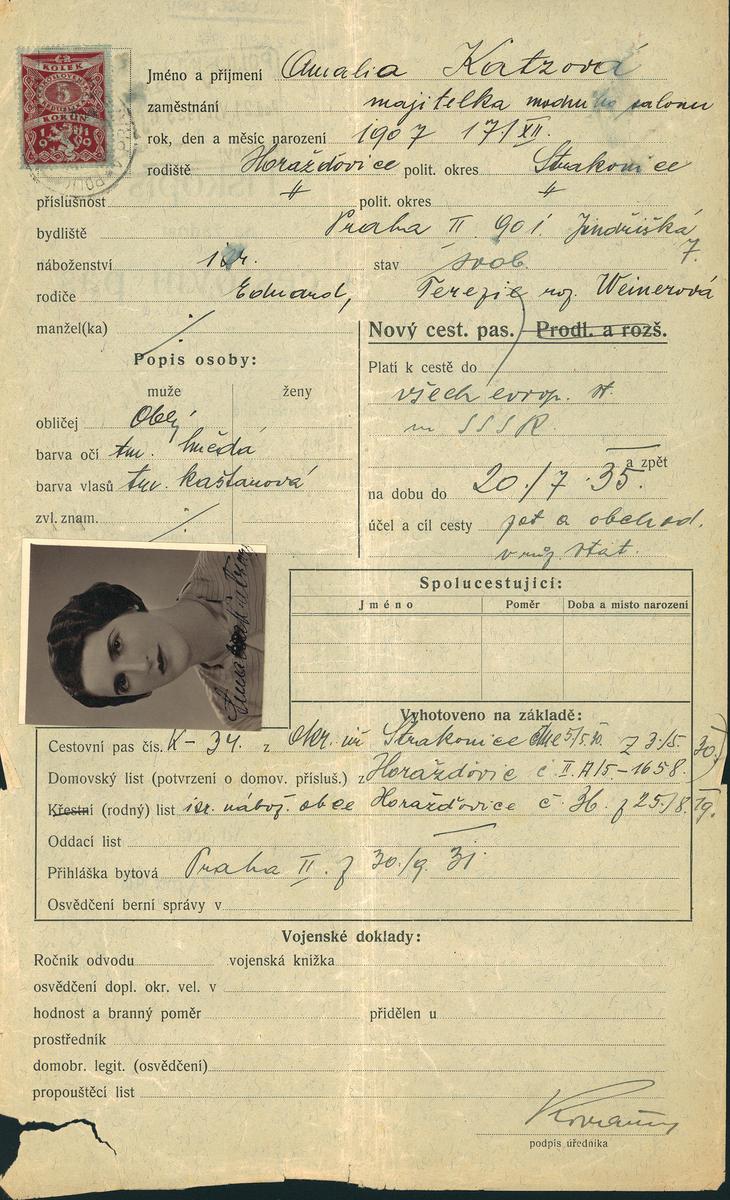 KOLEK
5
KORUN
1919
Jméno a příjmení Amalia Katzová
zaměstnání majitelka modního salonu
rok, den a měsíc narození 1907 17/XII.
rodiště Horažďovice polit. okres Strakonice
příslušnost " polit. okres "
bydliště Praha II 901 Jindřišská
7.
náboženství isr. stav svob.
rodiče Eduard, Terezie roz. Weinerová
manžel(ka) /
Nový cest. pas. — Prodl. a rozš.
Popis osoby:
Platí k cestě do
muže ženy
všech evrop. st.
obličej Oblý
SSSR.
barva očí tm. hnědá
a zpět
barva vlasů tm. kaštanová
na dobu do 20./7. 35.
zvl. znam. /
účel a cíl cesty a obchod.
stát.
Spolucestující:
Jméno Poměr Doba a místo narození
Vyhotoveno na základě:
Cestovní pas čís. K-34. z Okr. úř Strakonice z 3./5. 30.
Domovský list (potvrzení o domov. přísluš.) z Horažďovic č II.A/5.-1658.
Křestní (rodný) list isr. nábož. obce Horažďovice č 36. z 25./8. 19.
Oddací list
Přihláška bytová Praha II. z 30./9. 31.
Osvědčení berní správy v
Vojenské doklady:
Ročník odvodu vojenská knížka
osvědčení dopl. okr. vel. v
hodnost a branný poměr přidělen u
prostředník
domobr. legit. (osvědčení)
propouštěcí list
podpis úředníka